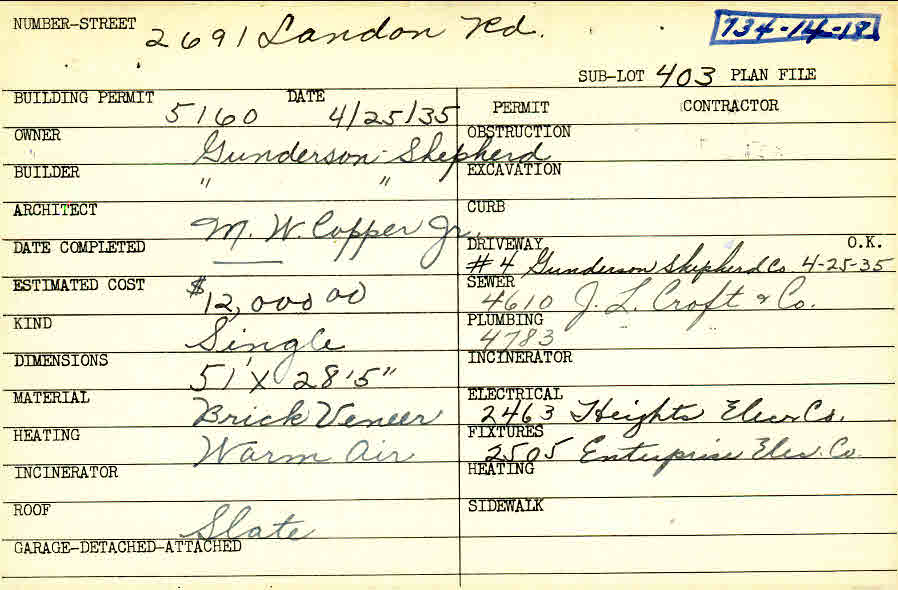 NUMBER-STREET 2691 Landon Rd. 734-14-18
SUB-LOT 403 PLAN FILE
BUILDING PERMIT 5160 DATE 4/25/35
OWNER Gunderson-Shepherd
BUILDER " "
ARCHITECT M. W. Copper Jr.
DATE COMPLETED
ESTIMATED COST $12,000 00
KIND Single
DIMENSIONS 51' X 28'5"
MATERIAL Brick Veneer
HEATING Warm Air
INCINERATOR
ROOF Slate
GARAGE-DETACHED-ATTACHED
PERMIT CONTRACTOR
OBSTRUCTION
EXCAVATION
CURB
DRIVEWAY O.K.
#4 Gunderson Shepherd Co. 4-25-35
SEWER 4610 J. L. Croft & Co.
PLUMBING 4783
INCINERATOR
ELECTRICAL 2463 Heights Elec. Co.
FIXTURES 2505 Enterprise Elec. Co.
HEATING
SIDEWALK